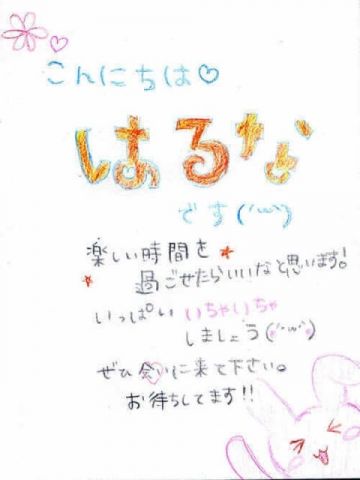 こんにちは♡
はるな
です(´˘ω˘`)
楽しい時間を★
★過ごせたらいいなと思います!
いっぱい いちゃいちゃ
しましょう(´˘ω˘`)
ぜひ会いに来て下さい。
お待ちしてます!!